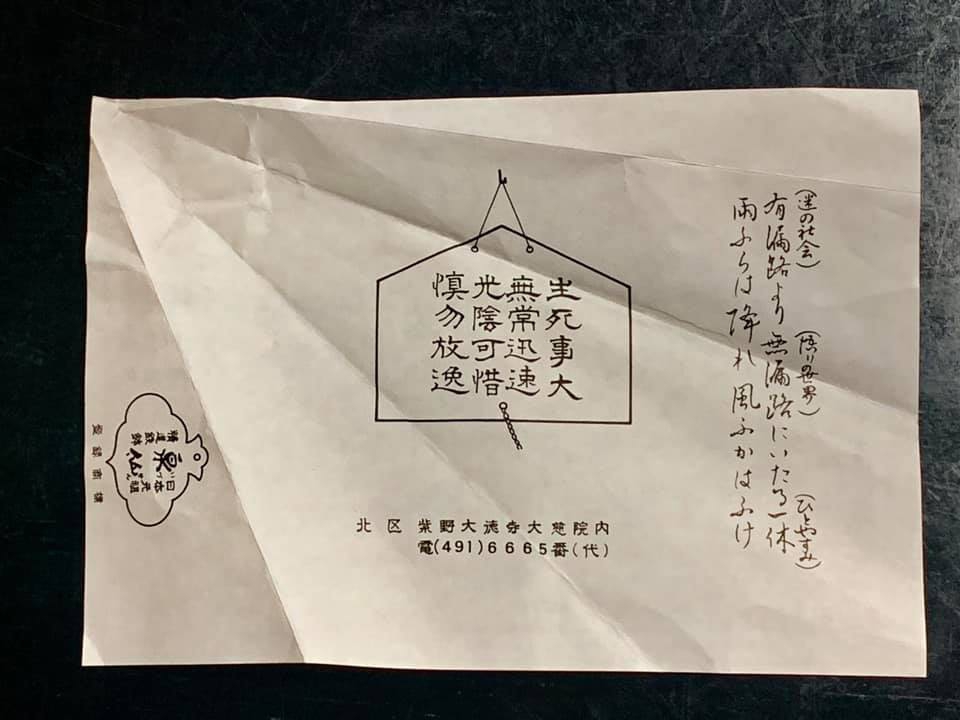 (迷の社会)
(悟りの世界)
(ひとやすみ)
有漏路より無漏路にいたる一休
雨ふらは降れ風ふかはふけ
生死事大
無常迅速
光陰可惜
慎勿放逸
北区 紫野大徳寺大慈院内
電(491)6665番(代)
日本元祖
泉
精進鉄鉢
登録商標